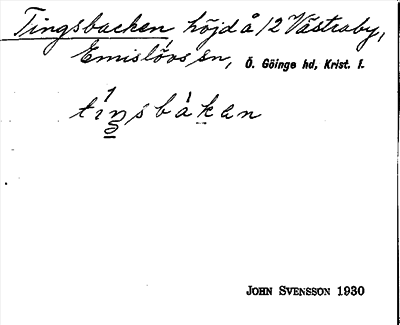 Tingsbacken, höjd å /2 Västraby,
Emislövs sn, Ö. Göinge hd, Krist. l.
tiŋsbàkan
JOHN SVENSSON 1930